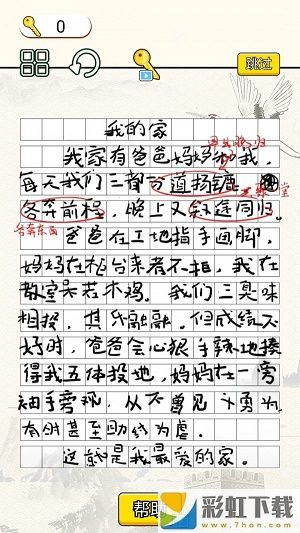 0
跳过
我的家
早出晚归
我家有爸爸妈妈和我,
每天我们三都分道扬镳
各奔前程,晚上又殊途同归。
各奔东西
爸爸在工地指手画脚,
妈妈在柜台来者不拒,我在
教室呆若木鸡。我们三臭味
相投,其乐融融。但成绩不
好时,爸爸会心狠手辣地揍
得我五体投地,妈妈在一旁
袖手旁观,从不曾见义勇为,
有时甚至助纣为虐。
这就是我最爱的家。
帮助
彩虹下载
www.7hon.com